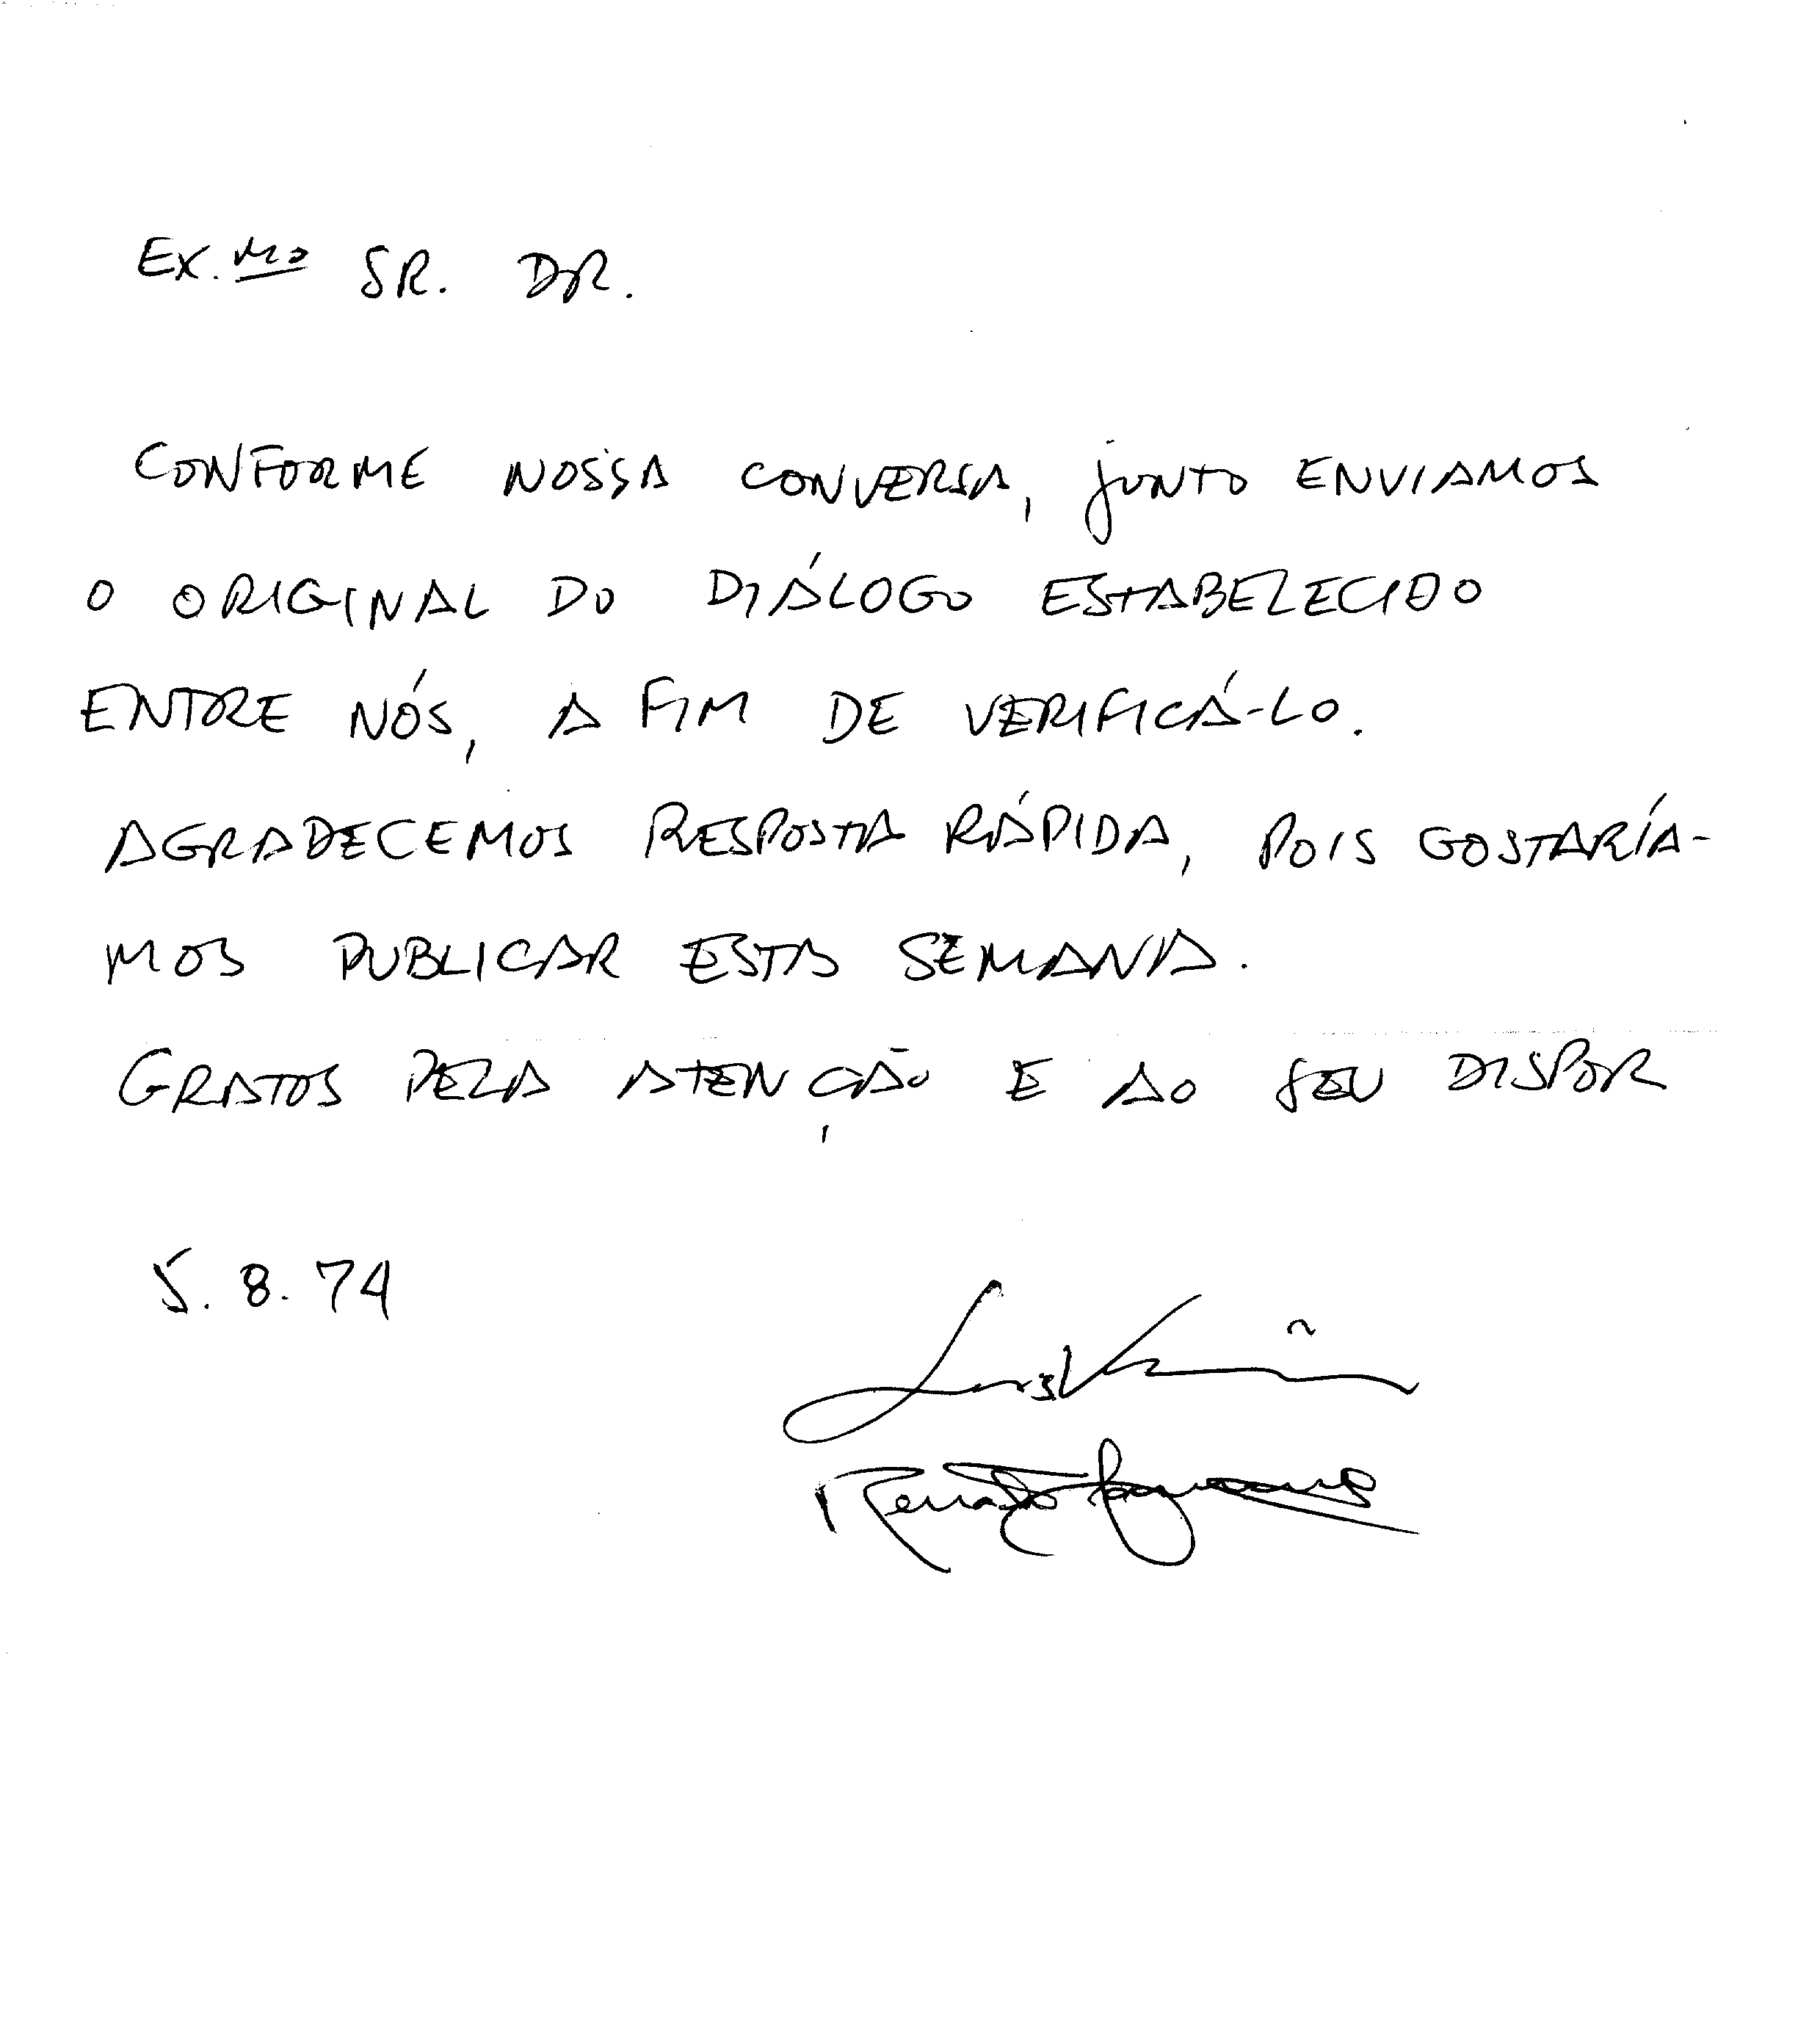 EX.MO SR. DR.
CONFORME NOSSA CONVERSA, JUNTO ENVIAMOS
O ORIGINAL DO DIÁLOGO ESTABELECIDO
ENTRE NÓS, A FIM DE VERIFICÁ-LO.
AGRADECEMOS RESPOSTA RÁPIDA, POIS GOSTARÍA-
MOS PUBLICAR ESTA SEMANA.
GRATOS PELA ATENÇÃO E AO SEU DISPOR
5.8.74
Luis
Renato